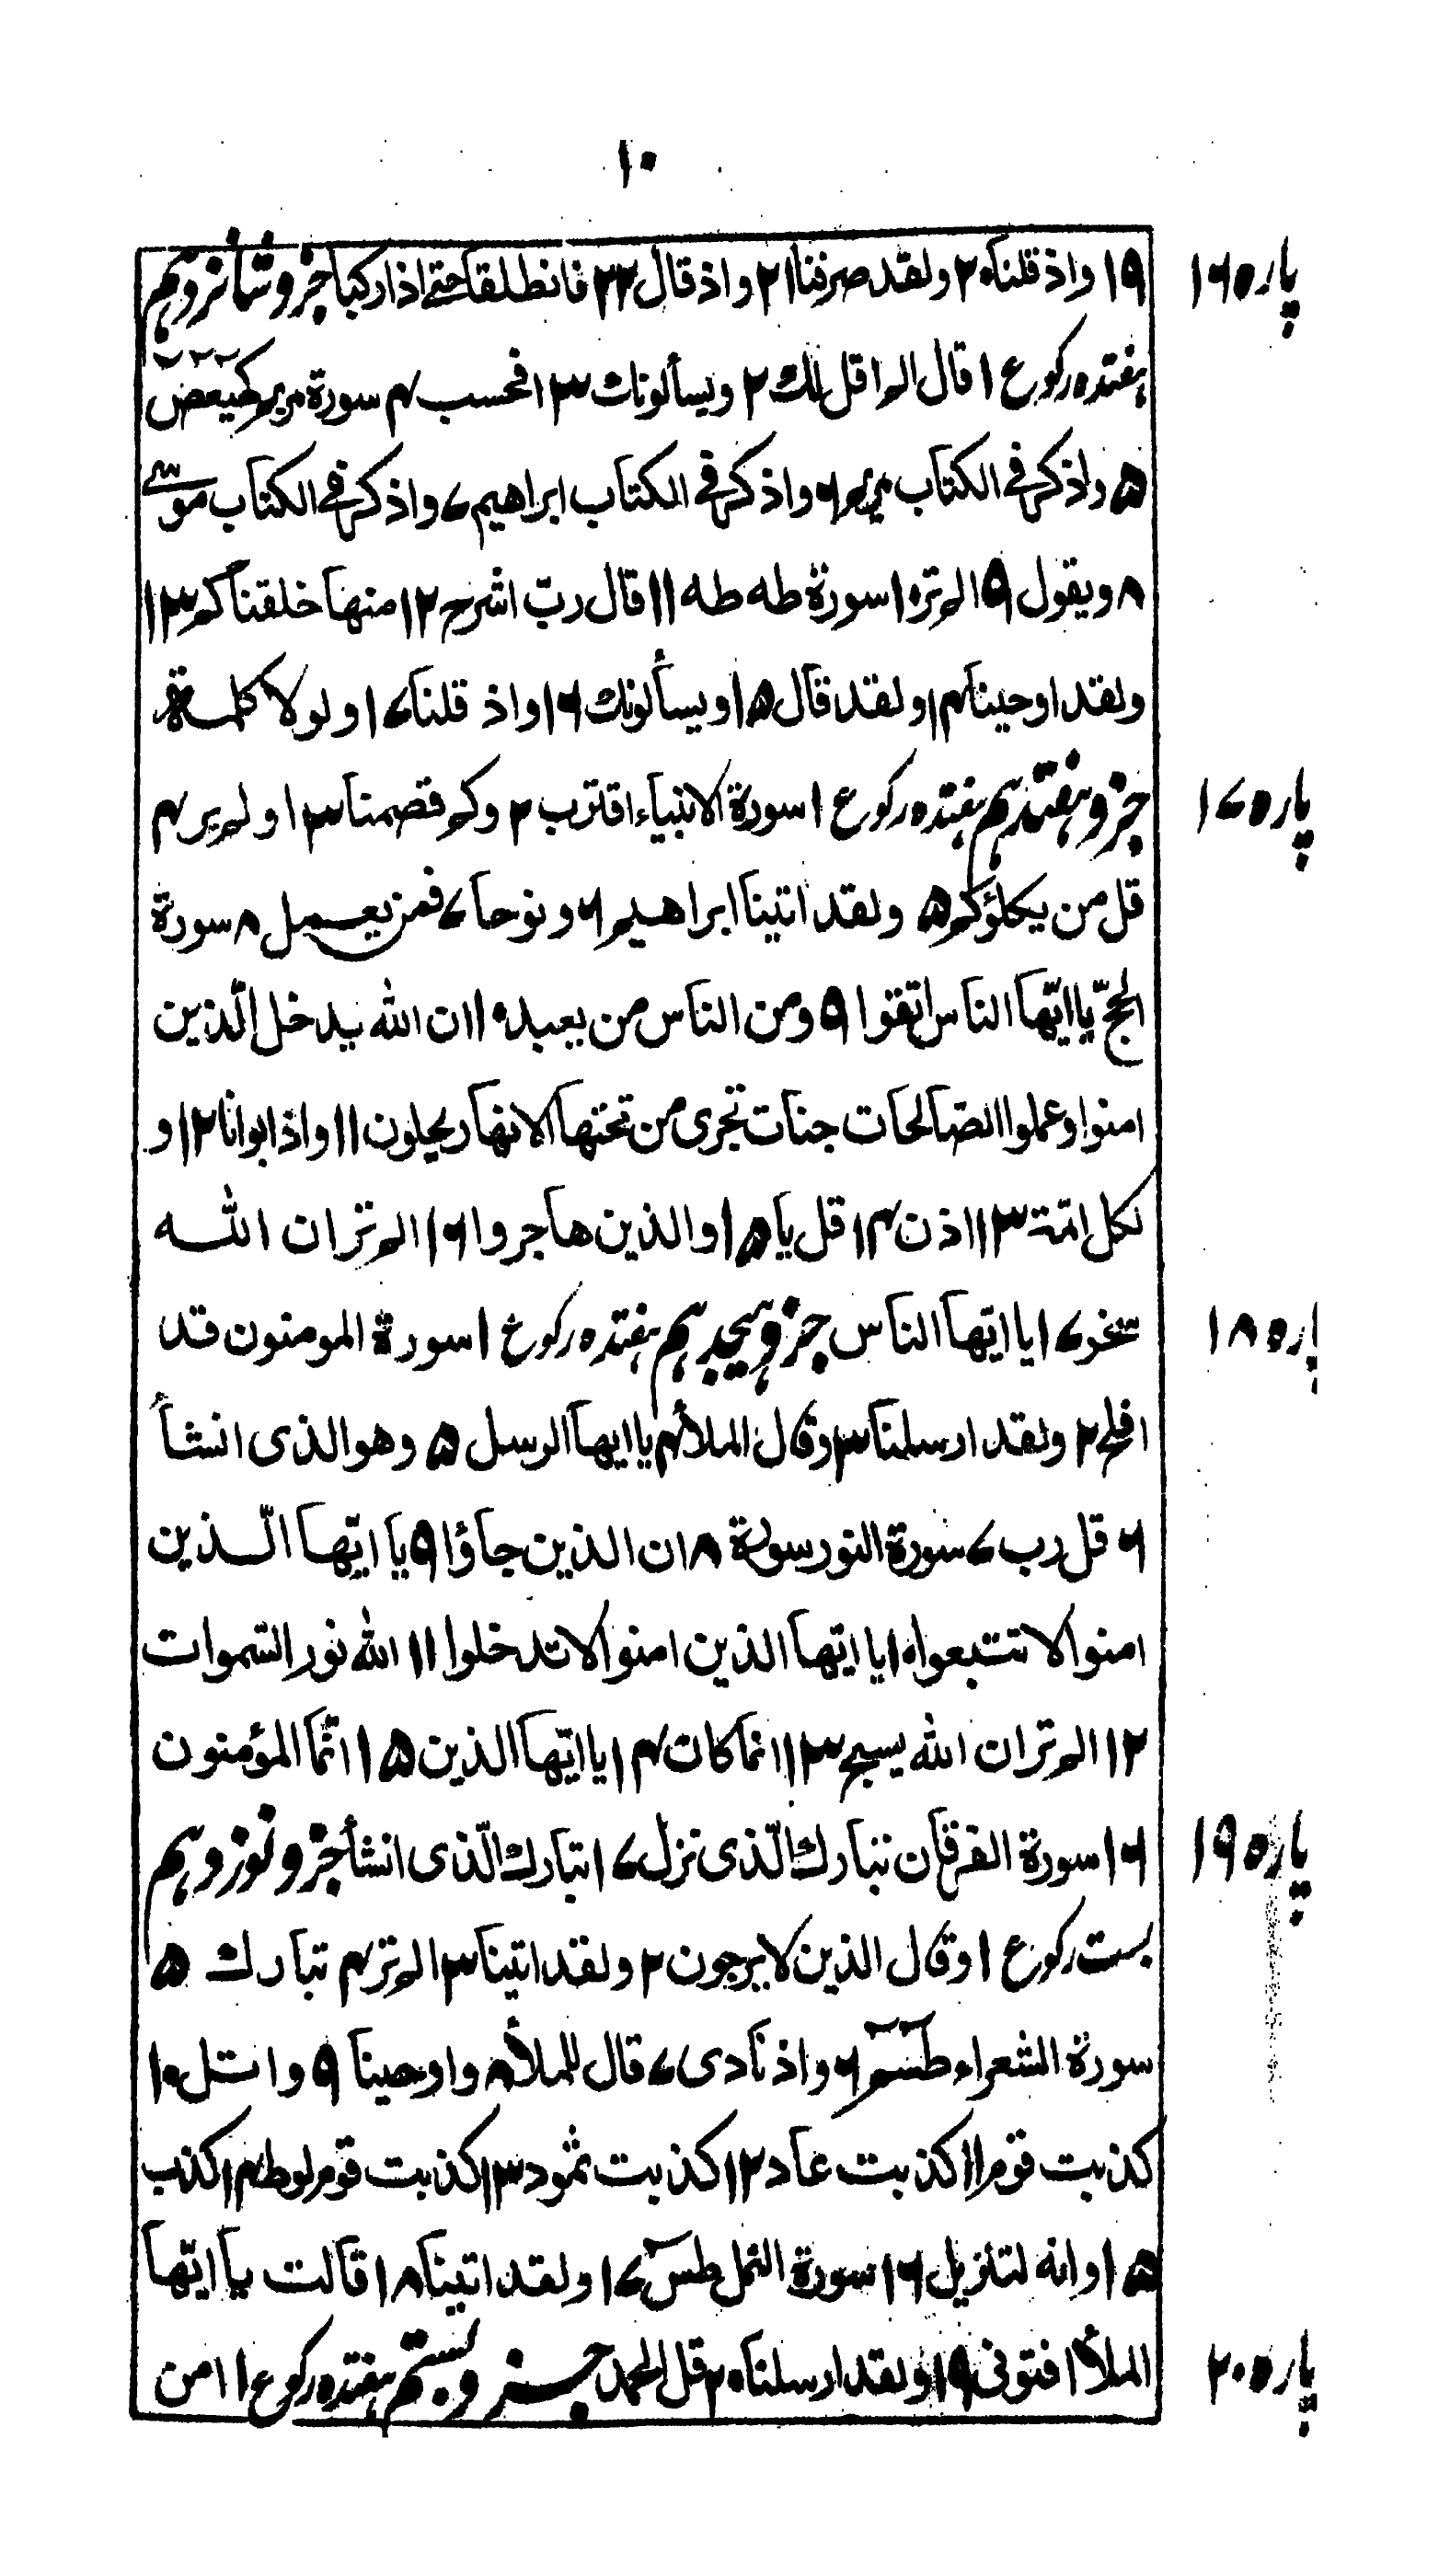 ۱۰
۱۹ واذ قلنا ۲۰ ولقد صرفنا ۲۱ واذ قال ۲۲ فانطلقا حتی اذا رکبا جزو شانزدہم
پارہ ۱۶
ہفتدہ رکوع ۱ قال الم اقل لك ۲ ویسألونك ۳ افحسب ۴ سورة مریم کهیعص
۵ واذکر فی الکتاب مریم ۶ واذکر فی الکتاب ابراهیم ۷ واذکر فی الکتاب موسی
۸ ویقول ۹ الم تر ۱۰ سورة طه طه ۱۱ قال ربّ اشرح ۱۲ منها خلقناکم ۱۳
ولقد اوحینا ۱۴ ولقد قال ۱۵ ویسألونك ۱۶ واذ قلنا ۱۷ ولولا کلمة
جزو ہفتدہم ہفتدہ رکوع ۱ سورة الانبیاء اقترب ۲ وکم قصمنا ۳ اولم یر ۴
پارہ ۱۷
قل من یکلؤکم ۵ ولقد اتینا ابراهیم ۶ ونوحا ۷ فمن یعمل ۸ سورة
الحجّ یا ایّها الناس اتقوا ۹ ومن الناس من یعبد ۱۰ ان الله یدخل الّذین
امنوا وعملوا الصّالحات جنات تجری من تحتها الانهار یحلون ۱۱ واذ ابوانا ۱۲ و
لکل امّة ۱۳ اذن ۱۴ قل یا ۱۵ والذین هاجروا ۱۶ الم تر ان الله
سخر ۱۷ یا ایّها الناس جزو ہیجدہم ہفتدہ رکوع ۱ سورة المومنون قد
پارہ ۱۸
افلح ۲ ولقد ارسلنا ۳ وقال الملأ ۴ یا ایها الرسل ۵ وهو الذی انشأ
۶ قل رب ۷ سورة النور سورة ۸ ان الذین جاؤا ۹ یا ایّها الّذین
امنوا لا تتبعوا ۱۰ یا ایّها الذین امنوا لا تدخلوا ۱۱ الله نور السّموات
۱۲ الم تر ان الله یسبح ۱۳ انما کان ۱۴ یا ایّها الذین ۱۵ انّما المؤمنون
۱۶ سورة الفرقان تبارك الّذی نزل ۱۷ تبارك الّذی انشأ جزو نوزدہم
پارہ ۱۹
بست رکوع ۱ وقال الذین لا یرجون ۲ ولقد اتینا ۳ الم تر ۴ تبارك ۵
سورة الشعراء طسم ۶ واذ نادی ۷ قال للملأ ۸ واوحینا ۹ واتل ۱۰
کذبت قوم ۱۱ کذبت عاد ۱۲ کذبت ثمود ۱۳ کذبت قوم لوط ۱۴ کذب
۱۵ وانه لتنزیل ۱۶ سورة النمل طس ۱۷ ولقد اتینا ۱۸ قالت یا ایّها
الملأ افتونی ۱۹ ولقد ارسلنا ۲۰ قل الحمد جزو بستم ہفتدہ رکوع ۱ امن
پارہ ۲۰